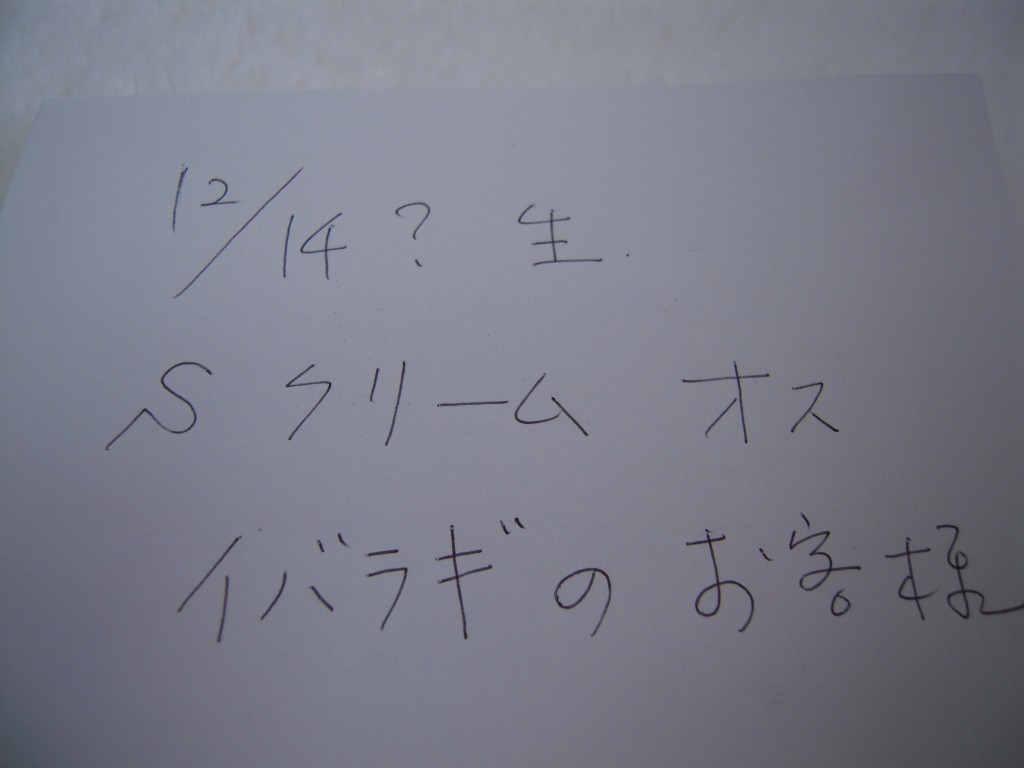 12/14? 生.
S クリーム オス
イバラギの お客様